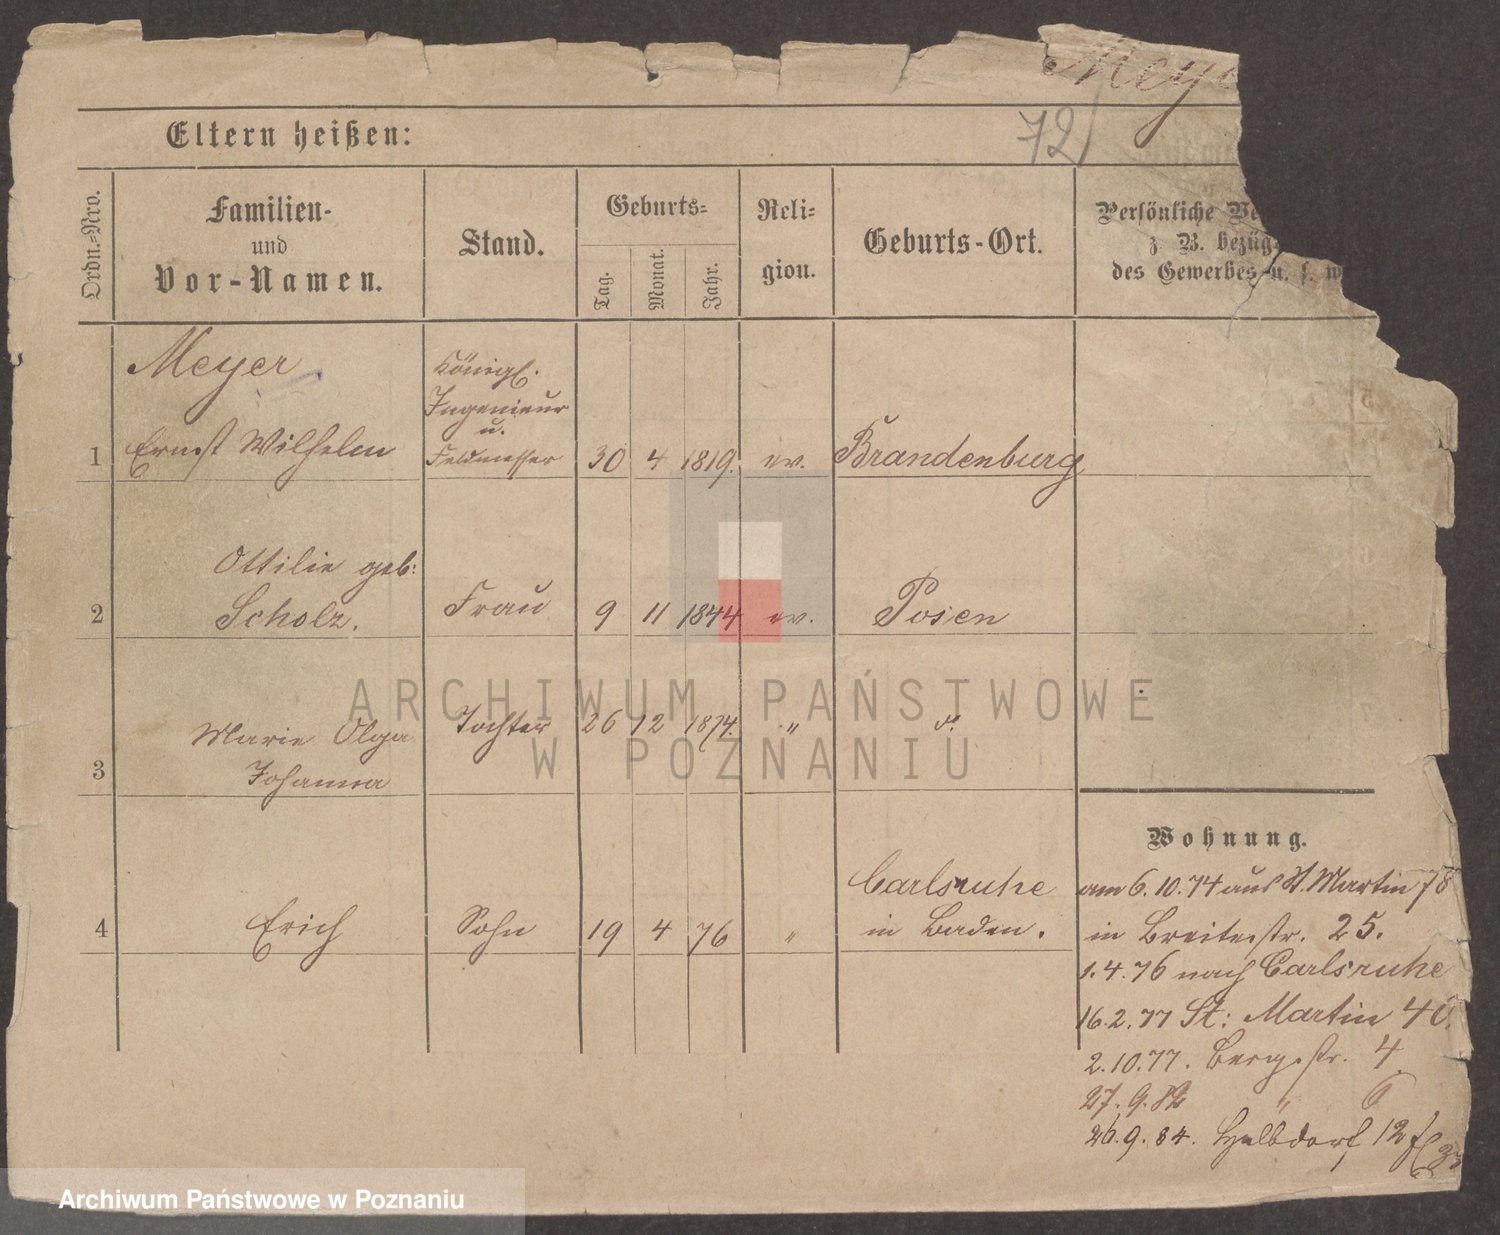 Meye
72
Eltern heißen:
Ordn.-Nro.
Familien-
und
Vor-Namen.
Stand.
Geburts-
Tag.
Monat.
Jahr.
Reli-
gion.
Geburts-Ort.
Persönliche Ve
z. B. bezüg
des Gewerbes u. s. w
Meyer
1 Ernst Wilhelm
Königl.
Ingenieur
u.
Feldmesser
30 4 1819. ev. Brandenburg
Ottilie geb:
2 Scholz. Frau 9 11 1844 ev. Posen
Marie Olga Tochter 26 12 1874. " d°.
3 Johanna
4 Erich Sohn 19 4 76 "
Carlsruhe
in Baden.
Wohnung.
am 6.10.74 aus St. Martin 78
in Breitestr. 25.
1.4.76 nach Carlsruhe
16.2.77 St: Martin 40.
2.10.77. Bergstr. 4.
27.9.82 " 6
26.9.84. Halbdorf 12
ARCHIWUM PAŃSTWOWE
W POZNANIU
Archiwum Państwowe w Poznaniu